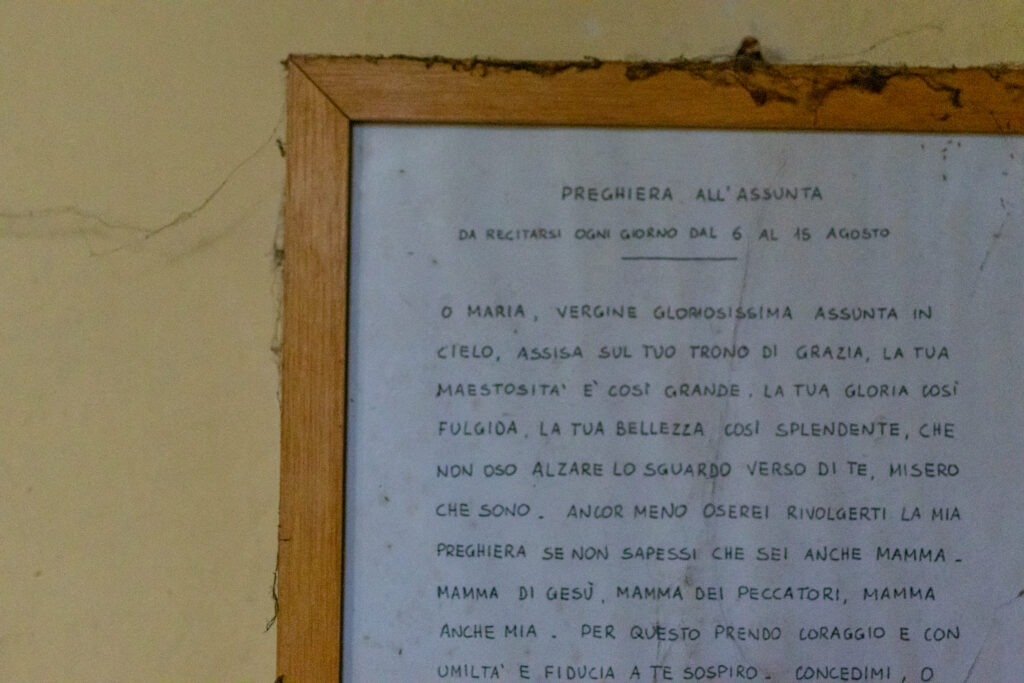 PREGHIERA ALL'ASSUNTA
DA RECITARSI OGNI GIORNO DAL 6 AL 15 AGOSTO
O MARIA, VERGINE GLORIOSISSIMA ASSUNTA IN
CIELO, ASSISA SUL TUO TRONO DI GRAZIA, LA TUA
MAESTOSITA' E' COSÌ GRANDE, LA TUA GLORIA COSÌ
FULGIDA, LA TUA BELLEZZA COSÌ SPLENDENTE, CHE
NON OSO ALZARE LO SGUARDO VERSO DI TE, MISERO
CHE SONO. ANCOR MENO OSEREI RIVOLGERTI LA MIA
PREGHIERA SE NON SAPESSI CHE SEI ANCHE MAMMA.
MAMMA DI GESÙ, MAMMA DEI PECCATORI, MAMMA
ANCHE MIA. PER QUESTO PRENDO CORAGGIO E CON
UMILTA' E FIDUCIA A TE SOSPIRO. CONCEDIMI, O